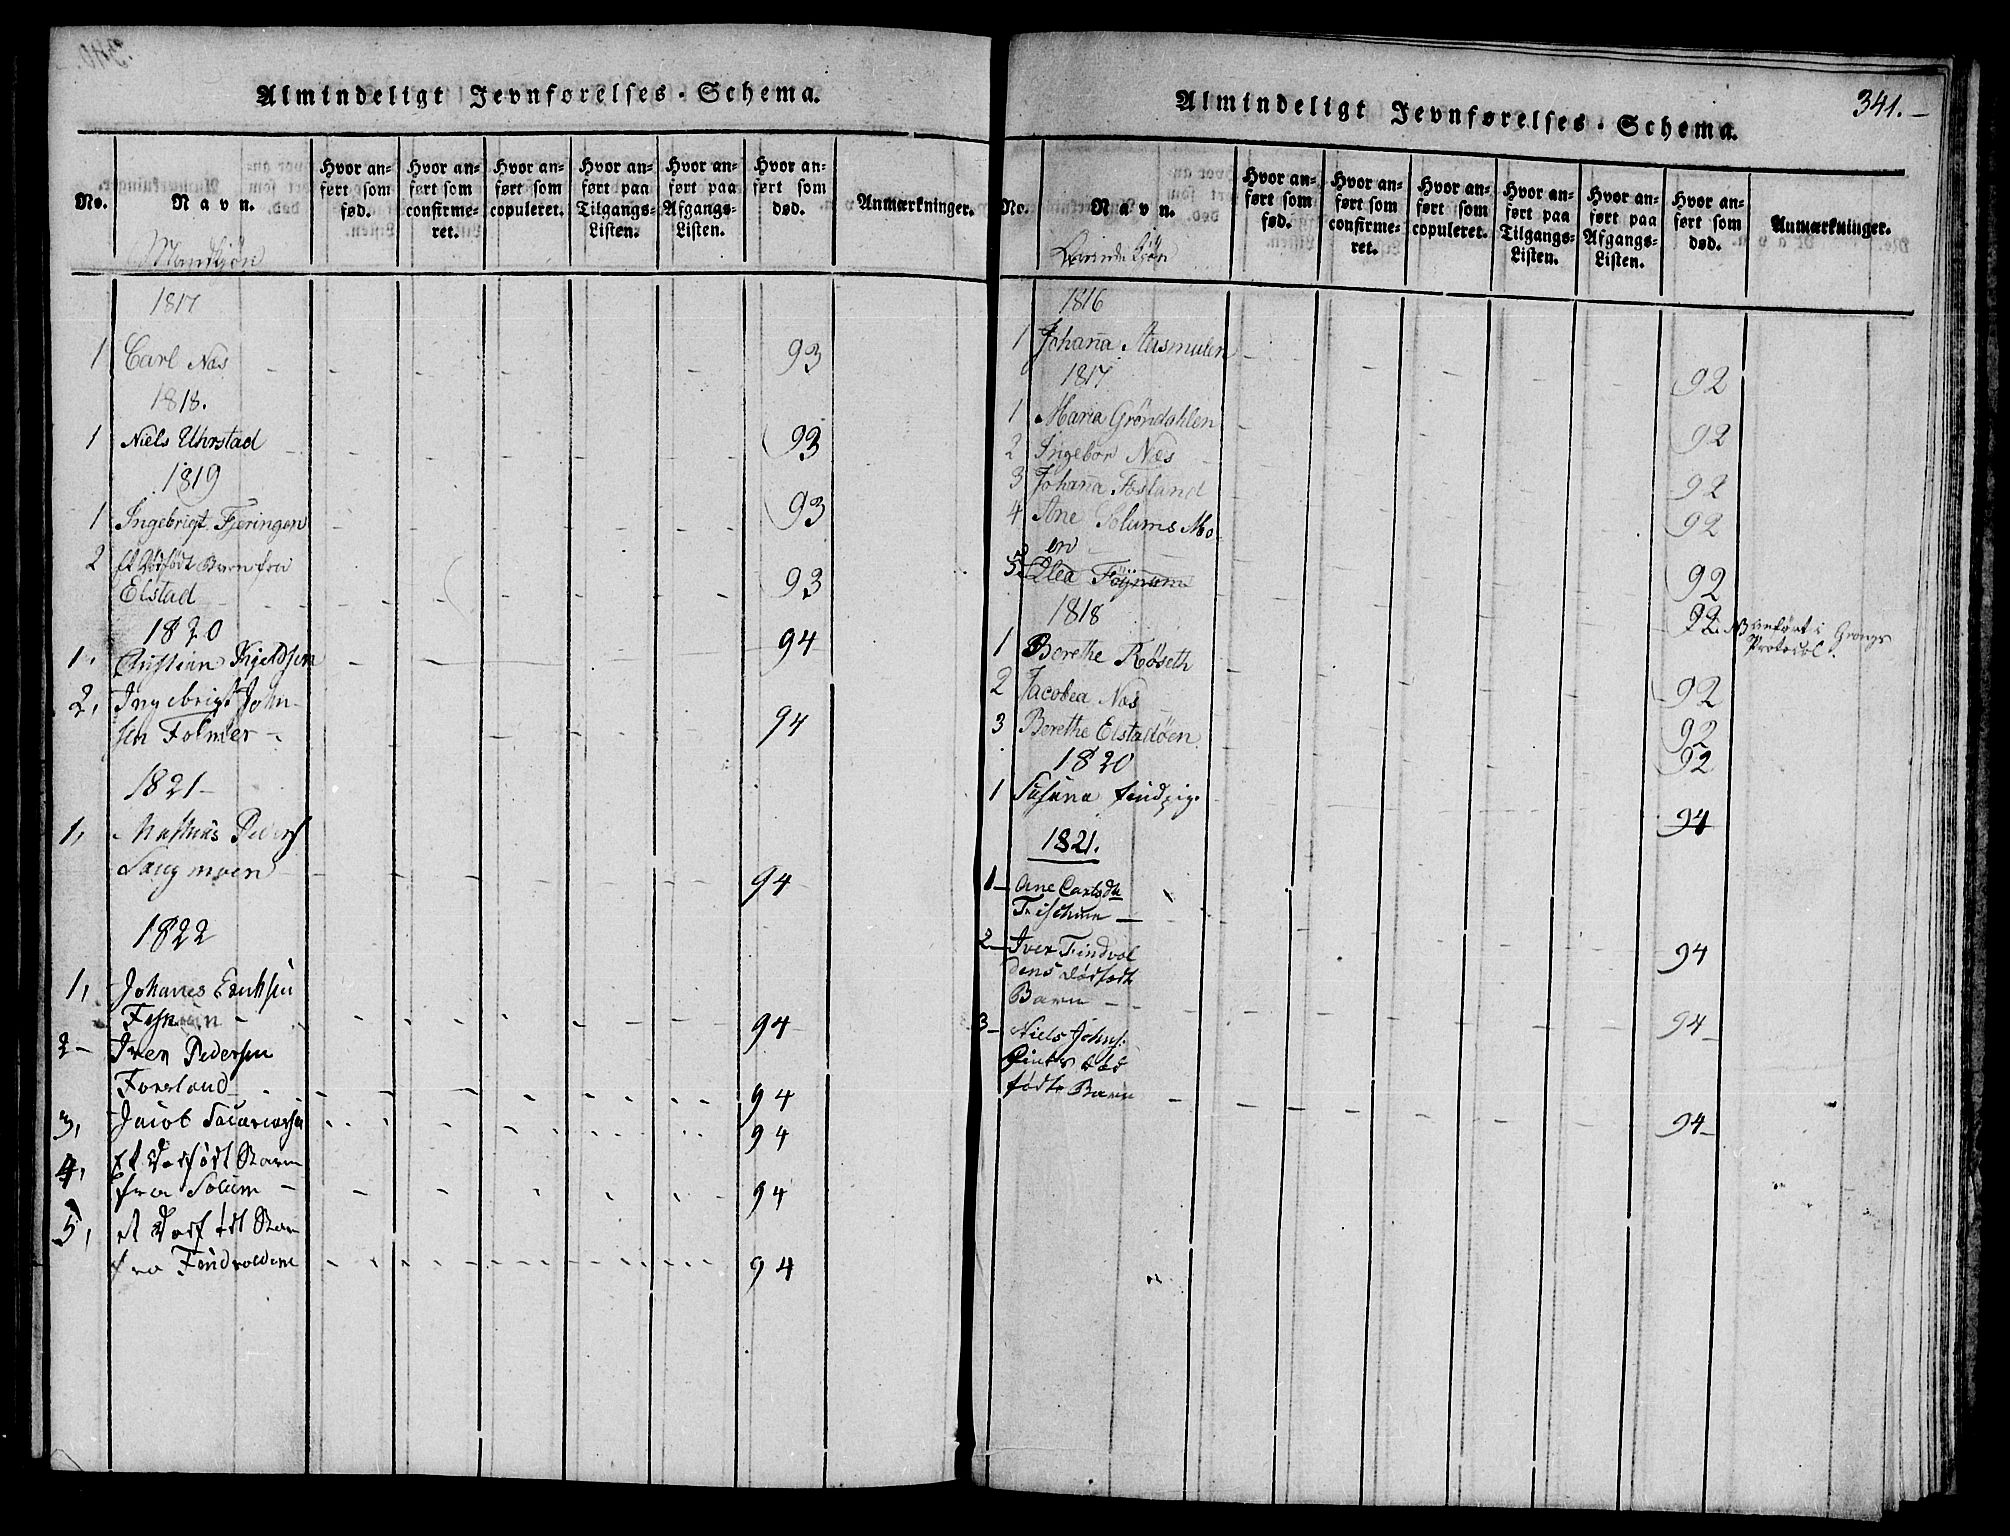 Almindeligt Jevnførelses-Schema.
No.
Navn.
Hvor an-
ført som
fød.
Hvor an-
ført som
confirme-
ret.
Hvor an-
ført som
copuleret.
Hvor an-
ført paa
Tilgangs-
Listen.
Hvor an-
ført paa
Afgangs-
Listen.
Hvor an-
ført som
død.
Anmærkninger.
Mandkjön
1817
1 Carl Næs - - - - - - 93
1818.
1 Niels Uhrstad - - - - - - 93
1819
1 Ingebrigt Fjeringen - - - - - 93
2 et dödfödt Barn fra
Elstad - - - - - - 93
1820
1, Christian Kjeldsen - - - - 94
2, Ingebrigt John-
sen Folmer - - - - 94
1821-
1, Mathias Peders
Saugmoen - - - - - 94
1822
1, Johanes Erichsen
- - - - - - 94
2- Iver Pedersen
Forsland - - - - - 94
3, Jacob Sacariasen - - - - 94
4, et Dødfødt Barn
fra Solum - - - - - 94
5, et Dødfødt Barn
fra Findvolden - - - - - 94
Almindeligt Jevnførelses-Schema.
341.-
No.
Navn.
Hvor an-
ført som
fød.
Hvor an-
ført som
confirme-
ret.
Hvor an-
ført som
copuleret.
Hvor an-
ført paa
Tilgangs-
Listen.
Hvor an-
ført paa
Afgangs-
Listen.
Hvor an-
ført som
død.
Anmærkninger.
Qvindekjön
1816
1 Johana Aasmulen - - - - - 92
1817
1 Maria Gröndahlen - - - - 92
2 Ingebor Næs - - - - - 92
3 Johana Fosland - - - - 92
4 Ane Solums Mo-
en - - - - - 92
5 Olea - - - - - 92. NB anført i Grongs
Protocol.
1818
1 Berethe Røseth - - - - 92
2 Jacobea Næs - - - - 92
3 Berethe Elstadöen - - - - 92
1820
1 Susana - - - - 94
1821.
1- Ane Carlsda
- - - - - 94
2- Iver Findvol
dens dødfødte
Barn - - - - - 94-
3- Niels Johns.
død
födte Barn - - - - - 94-